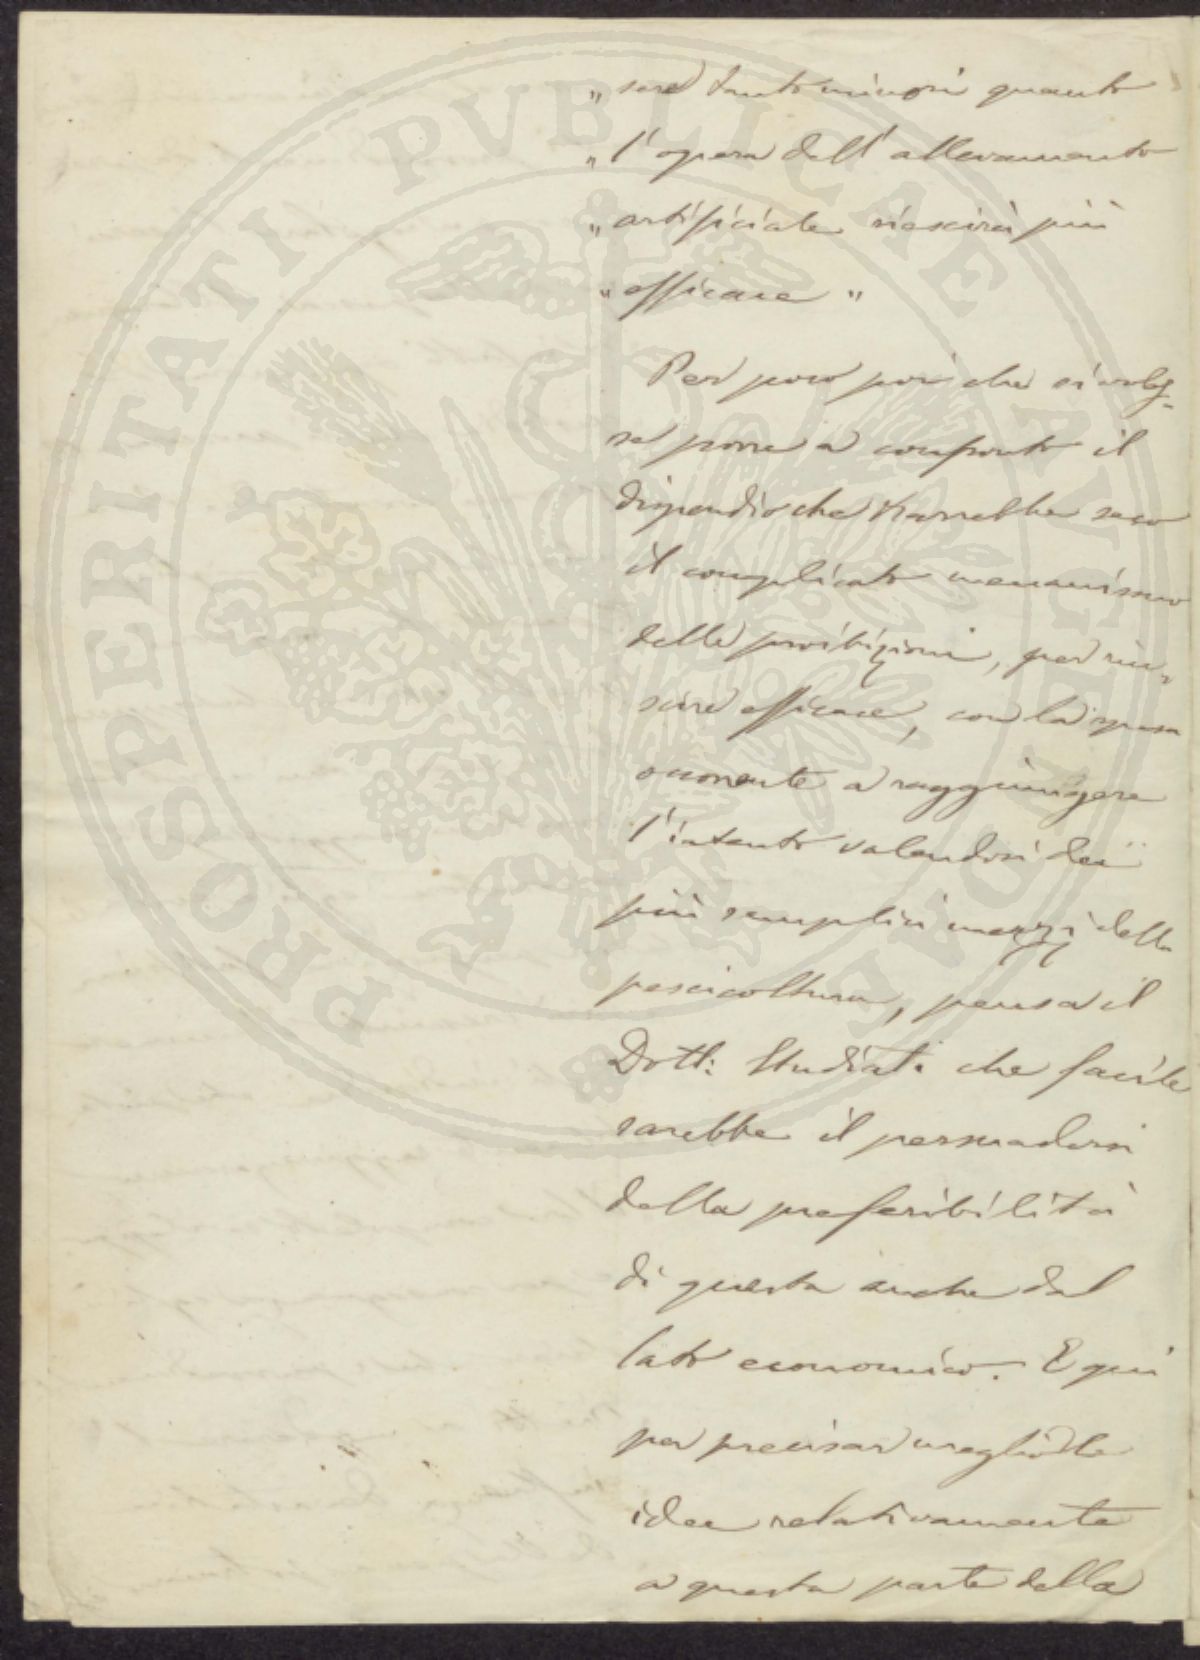 „ sarà tanto minore quanto
„ l'opera dell'allevamento
„ artificiale riescirà più
„ efficace "
Per poco poi che si voles-
se porre a confronto il
dispendio che trarrebbe seco
il complicato meccanismo
delle proibizioni, per riu-
scire efficace, con la spesa
occorrente a raggiungere
l'intento valendosi dei
più semplici mezzi della
pescicoltura, pensa il
Dott: Studiati che facile
sarebbe il persuadersi
della preferibilità
di questa anche dal
lato economico. E qui
per precisar meglio le
idee relativamente
a questa parte della
PROSPERITATI PVBLICAE AVGENDAE